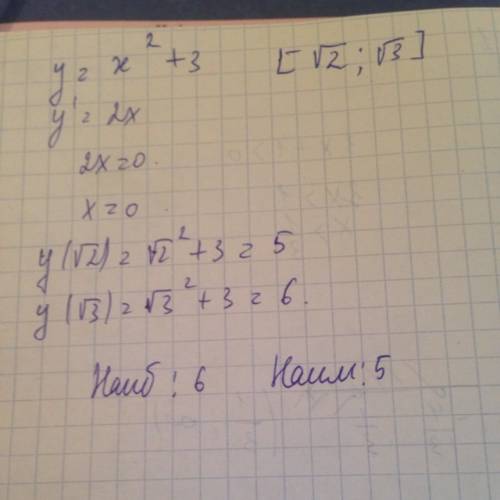 y = x² + 3 [√2 ; √3]
y' = 2x
2x = 0.
x = 0.
y(√2) = √2² + 3 = 5
y(√3) = √3² + 3 = 6.
Наиб : 6 Наим : 5